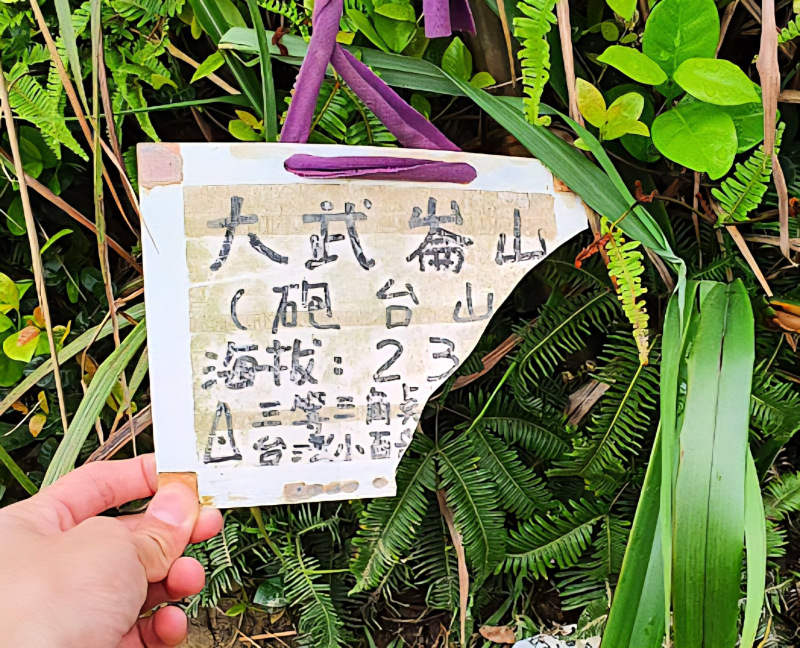 大武崙山
(砲台山
海拔:23
三等三角点
台湾小百